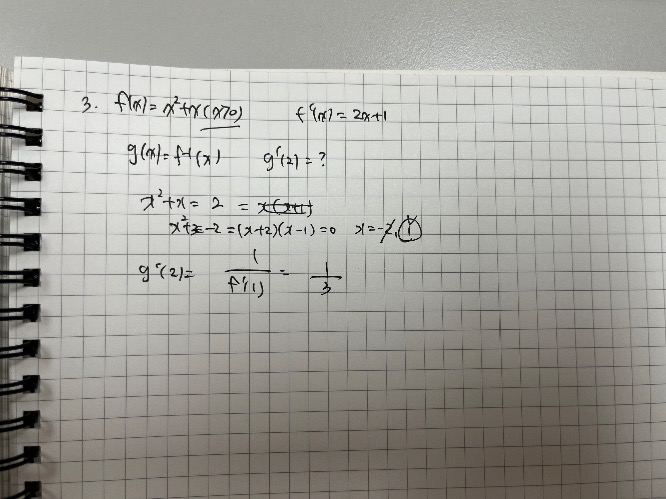 3. f(x) = x² + x (x>0) f'(x) = 2x+1
g(x) = f⁻¹(x) g'(2) = ?
x² + x = 2 = x(x+1)
x² + x - 2 = (x+2)(x-1) = 0 x = -2, 1
g'(2) = 1/f'(1) = 1/3